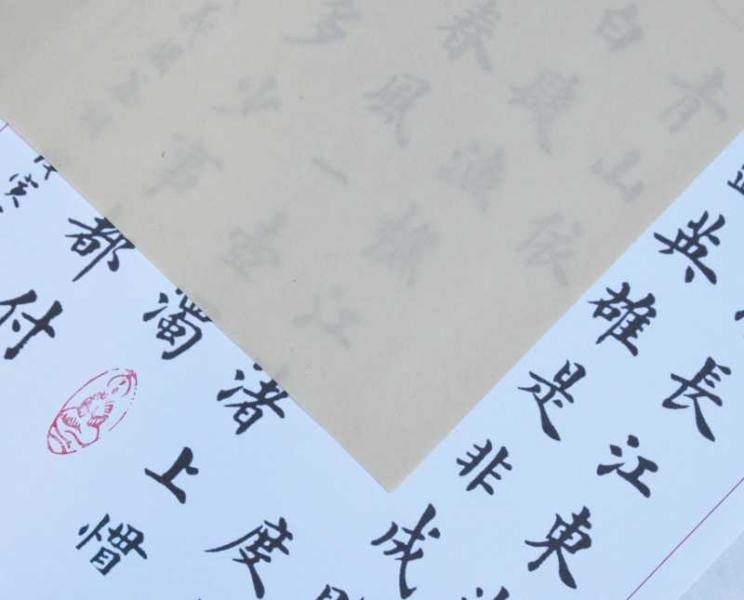 長江東
英雄是非成
青山依
度
白髮漁樵江渚上慣
春風一壺濁
多少事都付
寅